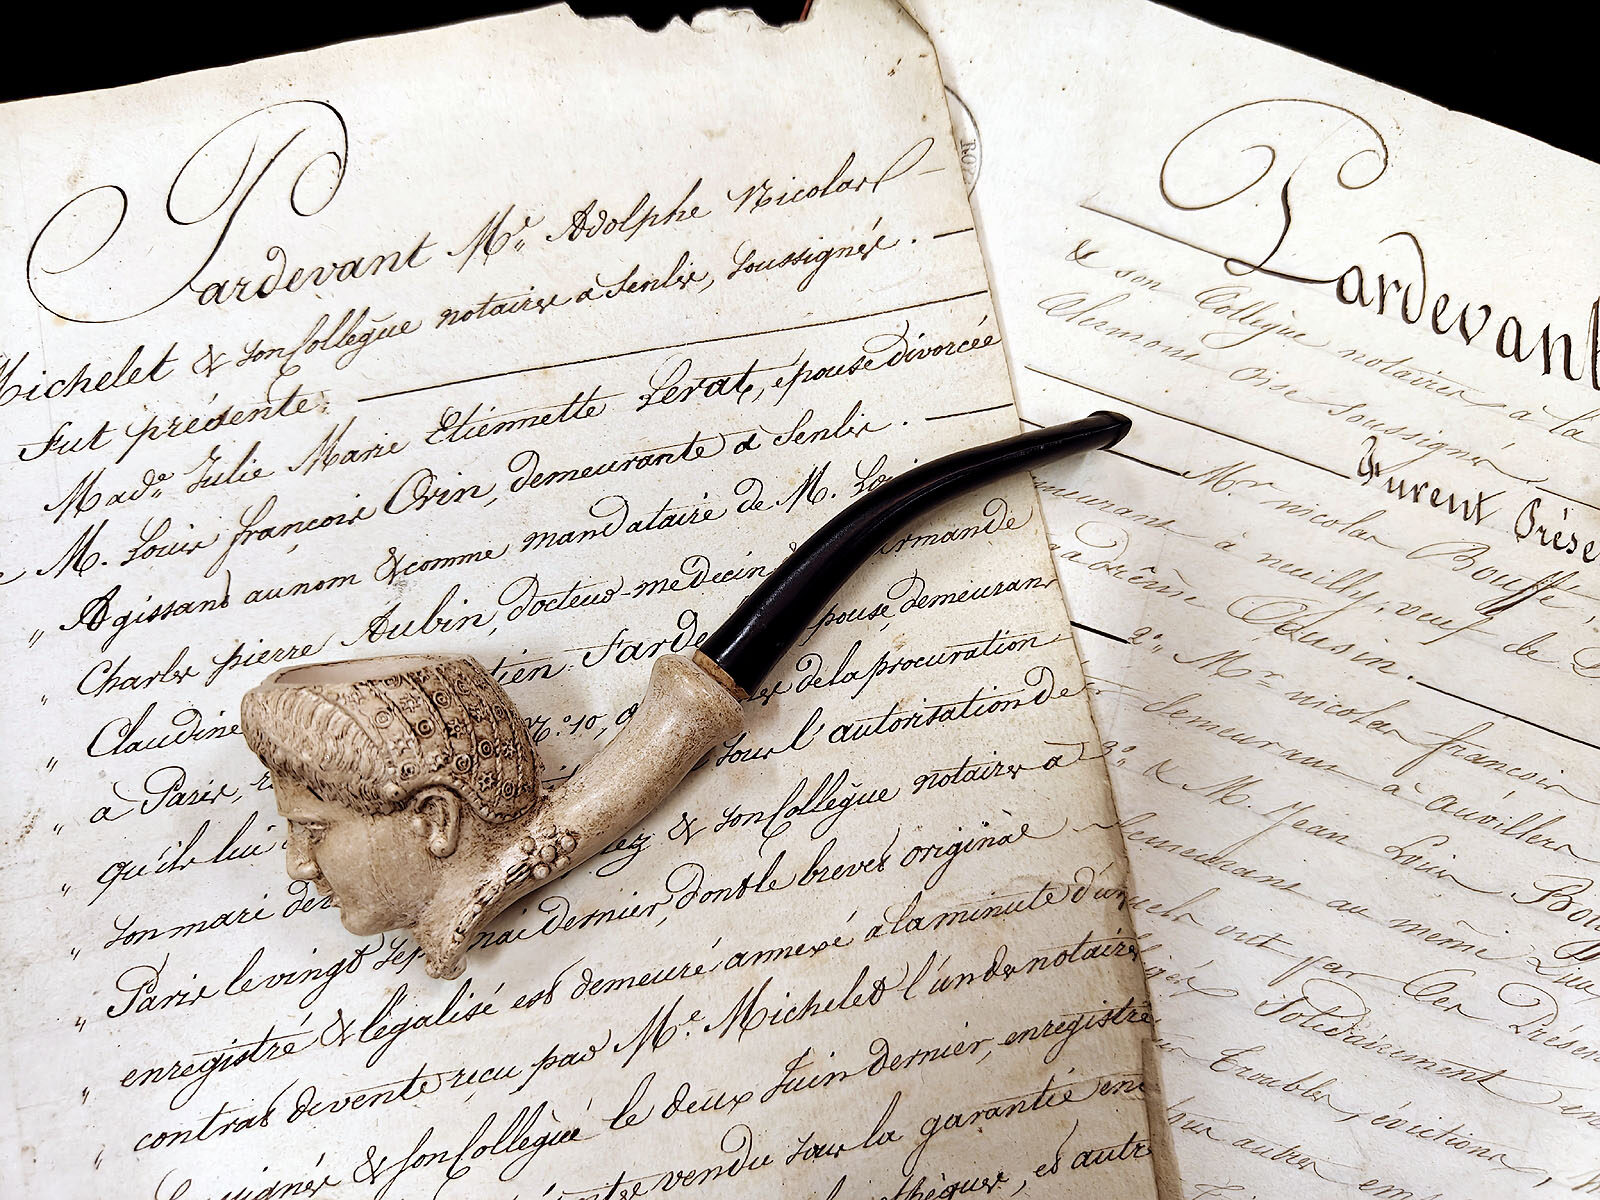 Pardevant Me. Adolphe Nicolas
Michelet & son Collègue notaires à Senlis, soussignés.
Fut présente:
Made. Julie Marie Etiennette Lerat, épouse divorcée
M. Louis françois Orin, demeurante à Senlis.
" Agissant au nom & comme mandataire de M. Loui
" Charles pierre Aubin, docteur-médecin & rmande
" Claudine tien Farde pouse, demeurans
" à Paris, r N.° 10, de la procuration
" qu'ils lui sous l'autorisation de
" son mari de & son Collègue notaires à
" Paris le vingt sep mai dernier, dont le brevet original
" enregistré & légalisé est demeuré annexé à la minute d'un
" contrat de vente reçu par Me. Michelet l'un des notaires
" soussignés & son Collègue le deux Juin dernier, enregistré
vendu sous la garantie en
et autre
Pardevant
& son Collègue notaires à la
Clermont Oise soussignés
Furent Prése
Mr. nicolas Bouffé
meurant à neuilly, veuf de
Cousin.
2°. Mr. nicolas françois
demeurant à Auvillers
3°. & M. Jean Louis Bou
demeurant au même Lieu
ont par Ces Présen
Solidairement
troubles, évictions,
autres